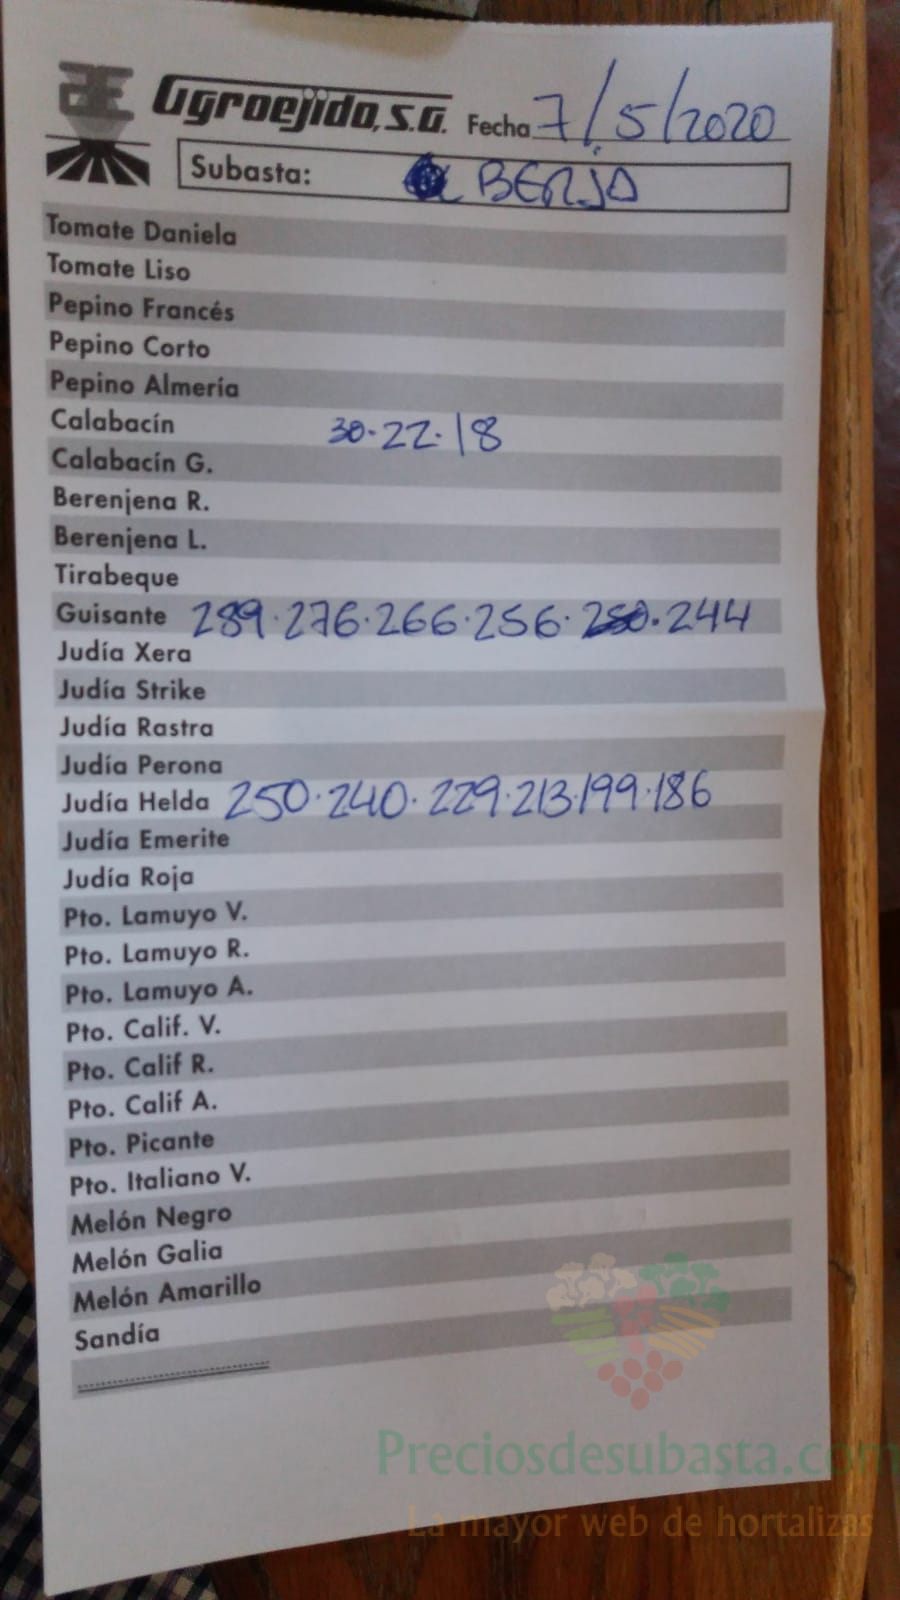 Agroejido, S.A. Fecha 7/5/2020
Subasta: BERJA
Tomate Daniela
Tomate Liso
Pepino Francés
Pepino Corto
Pepino Almería
Calabacín 30·22·18
Calabacín G.
Berenjena R.
Berenjena L.
Tirabeque
Guisante 289·276·266·256·250·244
Judía Xera
Judía Strike
Judía Rastra
Judía Perona
Judía Helda 250·240·229·213·199·186
Judía Emerite
Judía Roja
Pto. Lamuyo V.
Pto. Lamuyo R.
Pto. Lamuyo A.
Pto. Calif. V.
Pto. Calif R.
Pto. Calif A.
Pto. Picante
Pto. Italiano V.
Melón Negro
Melón Galia
Melón Amarillo
Sandía
Preciosdesubasta.com
La mayor web de hortalizas